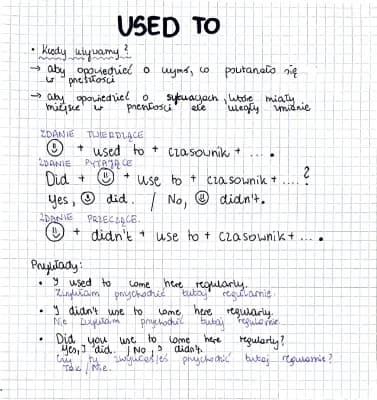 USED TO
• Kiedy używamy?
→ aby opowiedzieć o czymś, co powtarzało się
w przeszłości
→ aby opowiedzieć o sytuacjach, które miały
miejsce w przeszłości ale uległy zmianie
ZDANIE TWIERDZĄCE
☺ + used to + czasownik + ... .
ZDANIE PYTAJĄCE
Did + ☺ + use to + czasownik + .... ?
Yes, ☺ did. / No, ☺ didn't.
ZDANIE PRZECZĄCE.
☺ + didn't + use to + czasownik + ... .
Przykłady:
• I used to come here regularly.
Zwykłam przychodzić tutaj regularnie.
• I didn't use to come here regularly.
Nie zwykłam przychodzić tutaj regularnie.
• Did you use to come here regularly?
Yes, I did. / No, I didn't.
Czy ty zwykłeś przychodzić tutaj regularnie?
Tak / Nie.